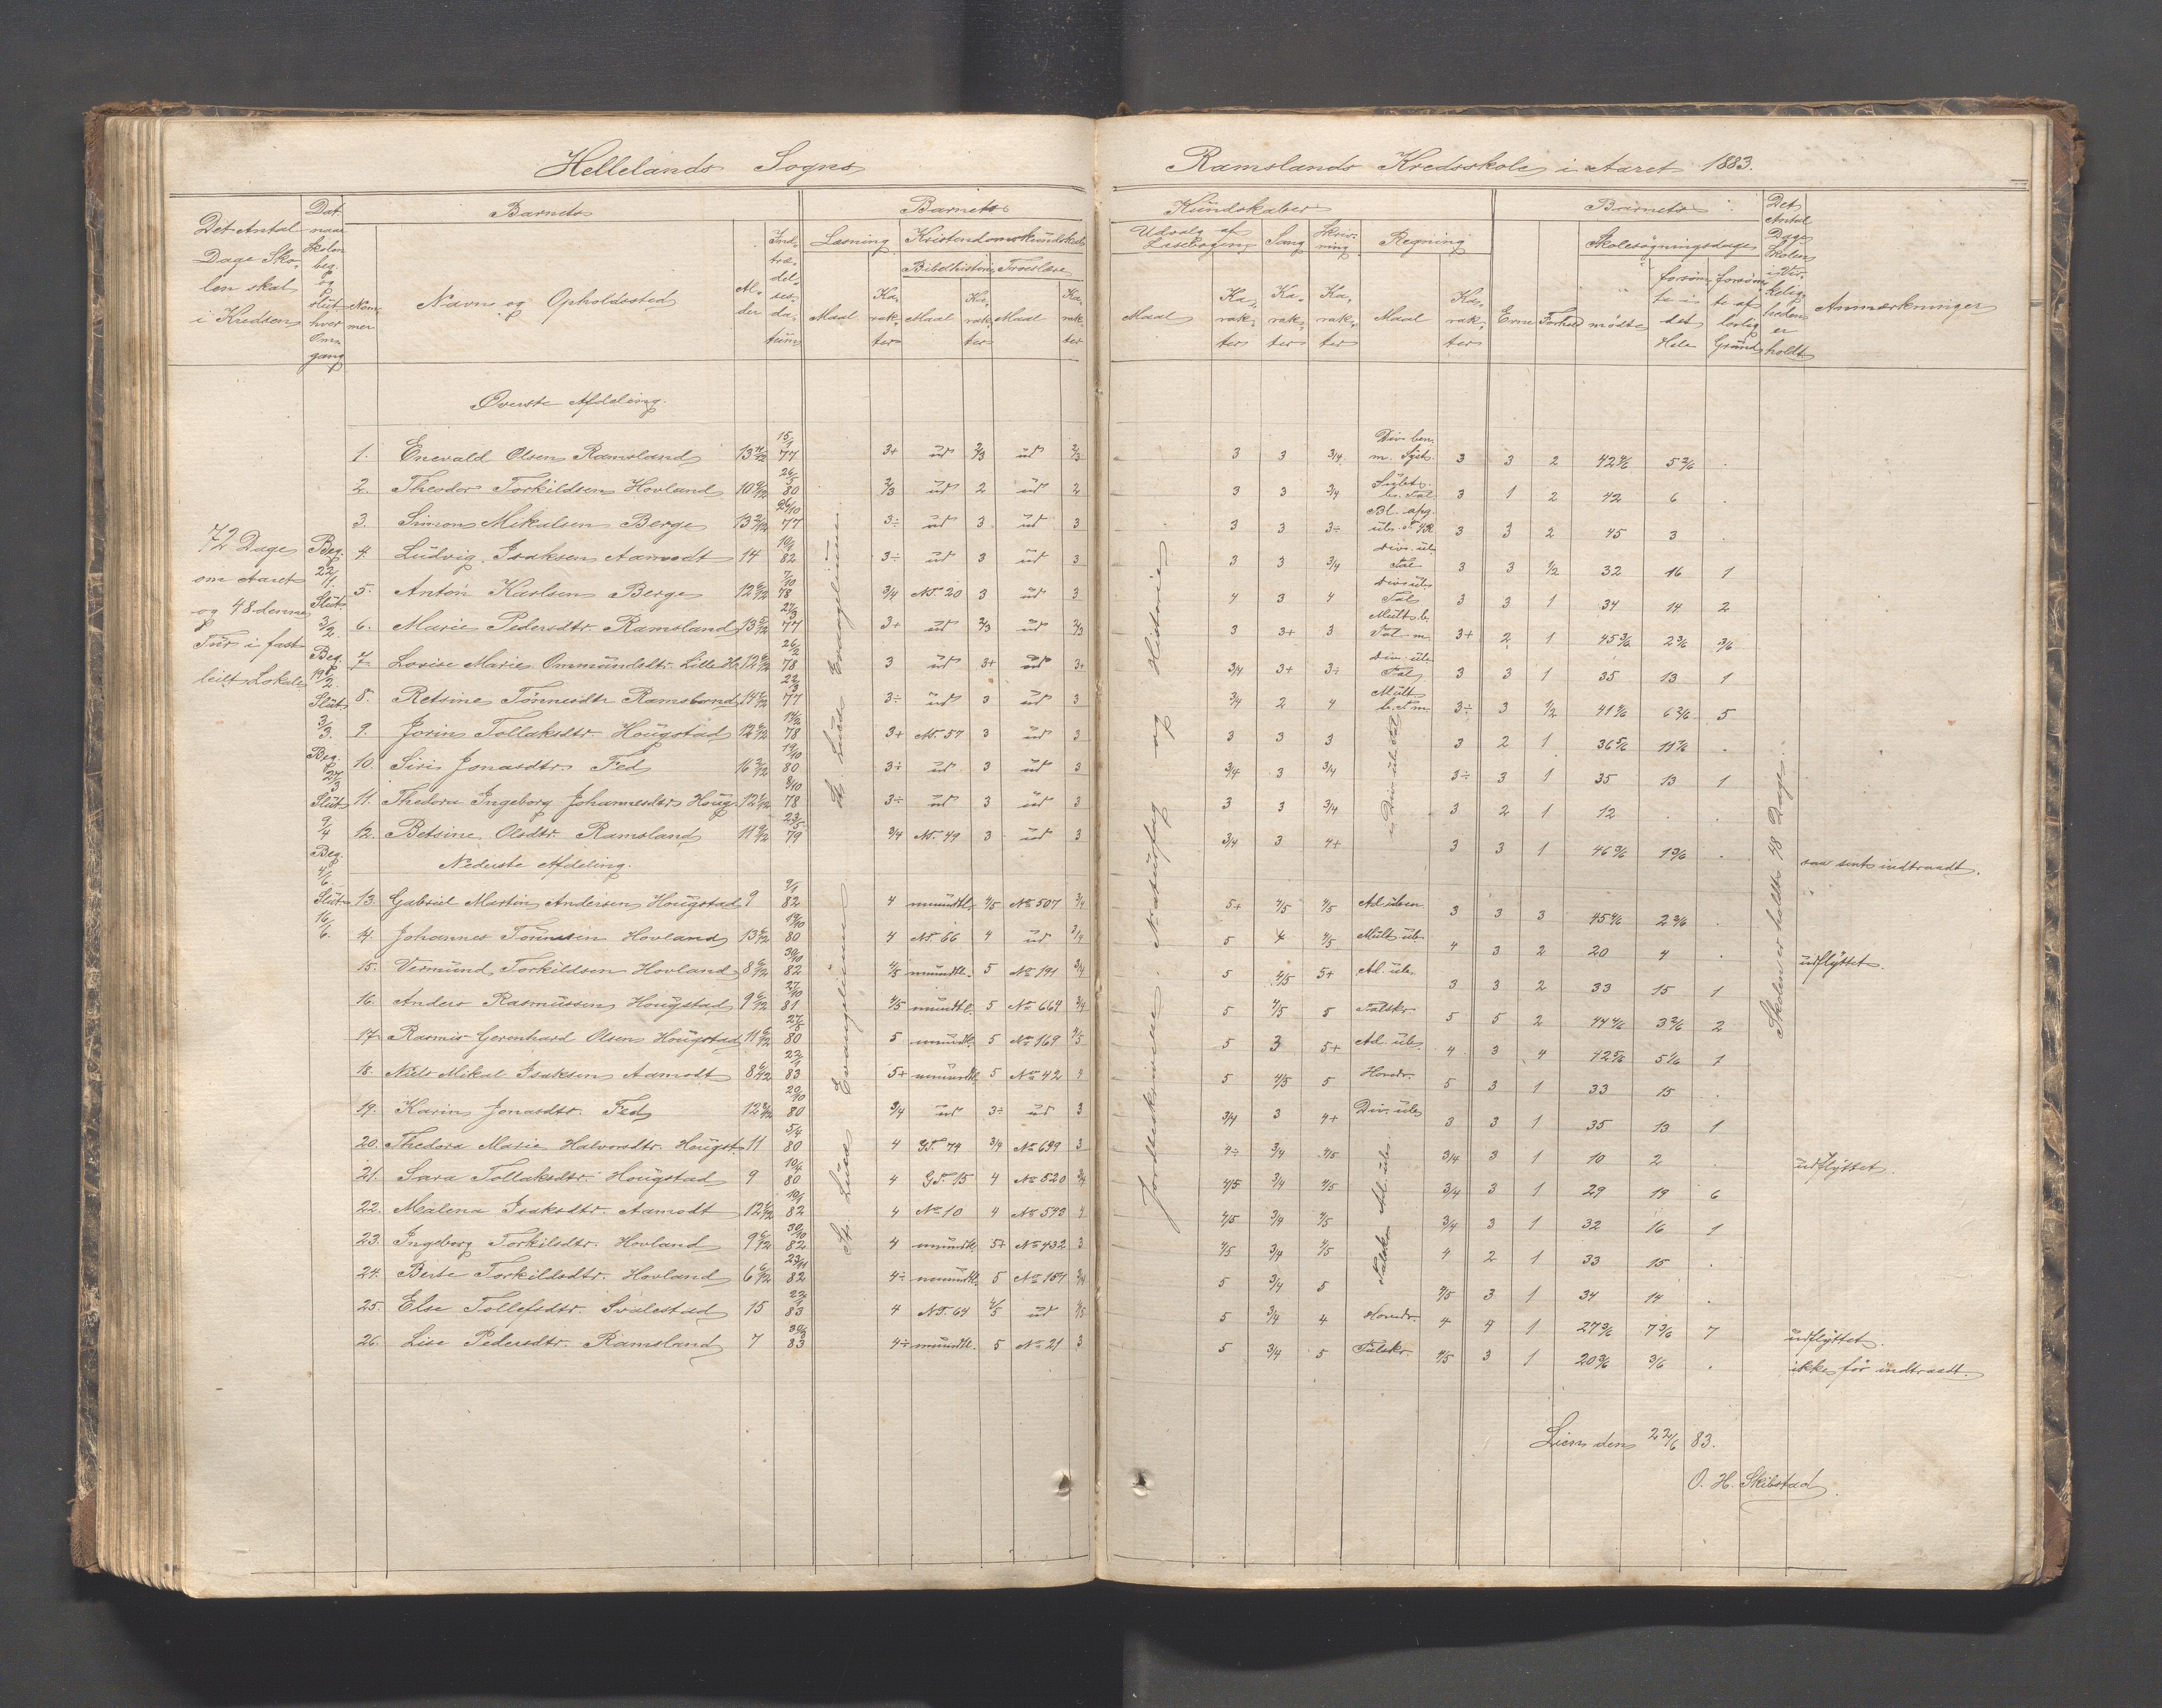 Hellelands Sogns
Ramslands Kredsskole i Aaret 1883.
Det Antal Dage Skolen skal i Kredsen
Dat. naar Skolen beg. og slut. hver Omgang
Barnets
Nummer
Navn og Opholdssted
Alder
Indtrædelsesdatum
Barnets
Kundskaber
Læsning
Maal
Karakter
Kristendomskundskab
Bibelhistorie
Troeslære
Maal
Karakter
Maal
Karakter
Udvalg af Læsebogen
Maal
Karakter
Sang
Karakter
Skrivning
Karakter
Regning
Maal
Karakter
Barnets
Evne
Forhold
Skolesøgningsdage
mødte
forsømte i det Hele
forsømte af lovlig Grund
Det Antal Dage Skolen i Virkeligheden er holdt
Anmærkninger
72 Dage
om Aaret
og 48 denne
Tur i fast
leiet Lokale
Beg. 22/1.
Slut 3/2.
Beg.
Slut 3/3.
Beg. 27/3
Slut 9/4
Beg. 4/6.
Slut 16/6.
St. Lucæ Evangelium
St. Lucæ Evangelium
Jordbeskrivelse, Naturfag og Historie
Skolen er holdt 48 Dage.
Øverste Afdeling.
1. Enevald Olsen Ramsland 15/1 77 3+ ud 2/3 ud 2/3 3 3 3/4 3 3 2 42 4/6 5 2/6 .
2. Theodor Torkildsen Hovland 10 6/12 26/5 80 2/3 ud 2 ud 2 3 3 3/4 3 1 2 42 6 .
3. Simon Mikalsen Berge 13 2/12 26/10 77 3÷ ud 3 ud 3 3 3 3÷ 3 3 2 45 3 .
4. Ludvig Isaksen Aamodt 14 19/1 82 3÷ ud 3 ud 3 3 3 3/4 Div. üb. Tal 3 3 1/2 32 16 1
5. Anton Karlsen Berge 12 6/12 7/10 78 3/4 N.T. 20 3 ud 3 4 3 4 Div. üb. Tal 3 3 1 34 14 2
6. Marie Pedersdtr. Ramsland 27/3 77 3+ ud 2/3 ud 2/3 3 3+ 3 3+ 2 1 45 3/6 2 3/6 3/6
7. Lovise Marie Ommundsdtr. Lille H. 26/2 78 3 ud 3+ ud 3+ 3/4 3+ 3÷ Div. üb. Tal 3 3 1 35 13 1
8. Retsine Tønnesdtr. Ramsland 22/3 77 3÷ ud 3 ud 3 3/4 2 4 3÷ 3 1/2 41 4/6 6 2/6 5
9. Jorine Tollaksdtr. Hougstad 14/2 78 3+ N.T. 57 3 ud 3 3 3 3 3 2 1 36 5/6 11 1/6 .
10. Siri Jonasdtr. Fed 19/10 80 3÷ ud 3 ud 3 3/4 3 3/4 3÷ 3 1 35 13 1
11. Thedora Ingeborg Johannesdtr. Houg. 8/10 78 3÷ ud 3 ud 3 3 3 3/4 3 2 1 12 . .
12. Betsine Olsdtr. Ramsland 23/5 79 3/4 N.T. 49 3 ud 3 3/4 3 4+ 3 3 1 46 3/6 1 3/6 .
saa sent indtraadt.
Nederste Afdeling.
13. Gabriel Martin Andersen Hougstad 9 9/1 82 4 mundtl. 4/5 No 507 3/4 5+ 4/5 4/5 Ad. üben 3 3 3 45 4/6 2 2/6 .
14. Johannes Tønnesen Hovland 19/10 80 4 N.T. 66 4 ud 3/4 5 4 4/5 Mult. üb. 4 3 2 20 4 . udflyttet.
15. Vermund Torkildsen Hovland 8 6/12 30/10 82 4/5 mundtl. 5 No 191 3/4 5 4/5 5+ Ad. üb. 3 3 2 33 15 1
16. Anders Rasmussen Hougstad 9 6/12 27/10 81 4/5 mundtl. 5 No 664 3/4 5 4/5 5 Talskr. 5 5 2 44 4/6 3 2/6 2
17. Rasmus Gerenhard Olsen Hougstad 27/5 80 5 mundtl. 5 No 169 4/5 5 3 5+ Ad. üb. 4 3 4 42 5/6 5 1/6 1
18. Niels Mikal Isaksen Aamodt 8 6/12 22/1 83 5+ mundtl. 5 No 42 4 5 4/5 5 Hovedr. 5 3 1 33 15 .
19. Karine Jonasdtr. Fed 20/10 80 3/4 ud 3÷ ud 3 3/4 3 4+ Div. üb. 3 3 1 35 13 1
20. Thedora Marie Halvorsdtr. Hougst. 11 5/4 80 4 G.T. 74 3/4 No 699 3 4÷ 3/4 4/5 3/4 3 1 10 2 . udflyttet.
21. Sara Tollaksdtr. Hougstad 9 19/4 80 4 G.T. 15 4 No 520 3/4 4/5 3/4 4/5 3/4 3 1 29 19 6
22. Malena Isaksdtr. Aamodt 19/1 82 4 No 10 4 No 593 4 4/5 3/4 4/5 3/4 3 1 32 16 1
23. Ingeborg Torkilsdtr. Hovland 30/10 82 4 mundtl. 5+ No 432 3 4/5 3/4 4/5 4 2 1 33 15 .
24. Berte Torkildsdtr. Hovland 6 6/12 23/11 82 4÷ mundtl. 5 No 157 3/4 5 3/4 5 4/5 3 1 34 14 .
25. Else Tollefsdtr. Svalestad 15 22/1 83 4 N.T. 64 4/5 ud 4/5 5 3/4 4 Hovedr. 4 4 1 27 3/6 7 3/6 7 udflyttet.
26. Lise Pedersdtr. Ramsland 7 83 4÷ mundtl. 5 No 21 3 5 3/4 5 Talskr. 4/5 3 1 20 3/6 3/6 . ikke før indtraadt.
Lien den 22/6 83.
O. H. Skibstad.